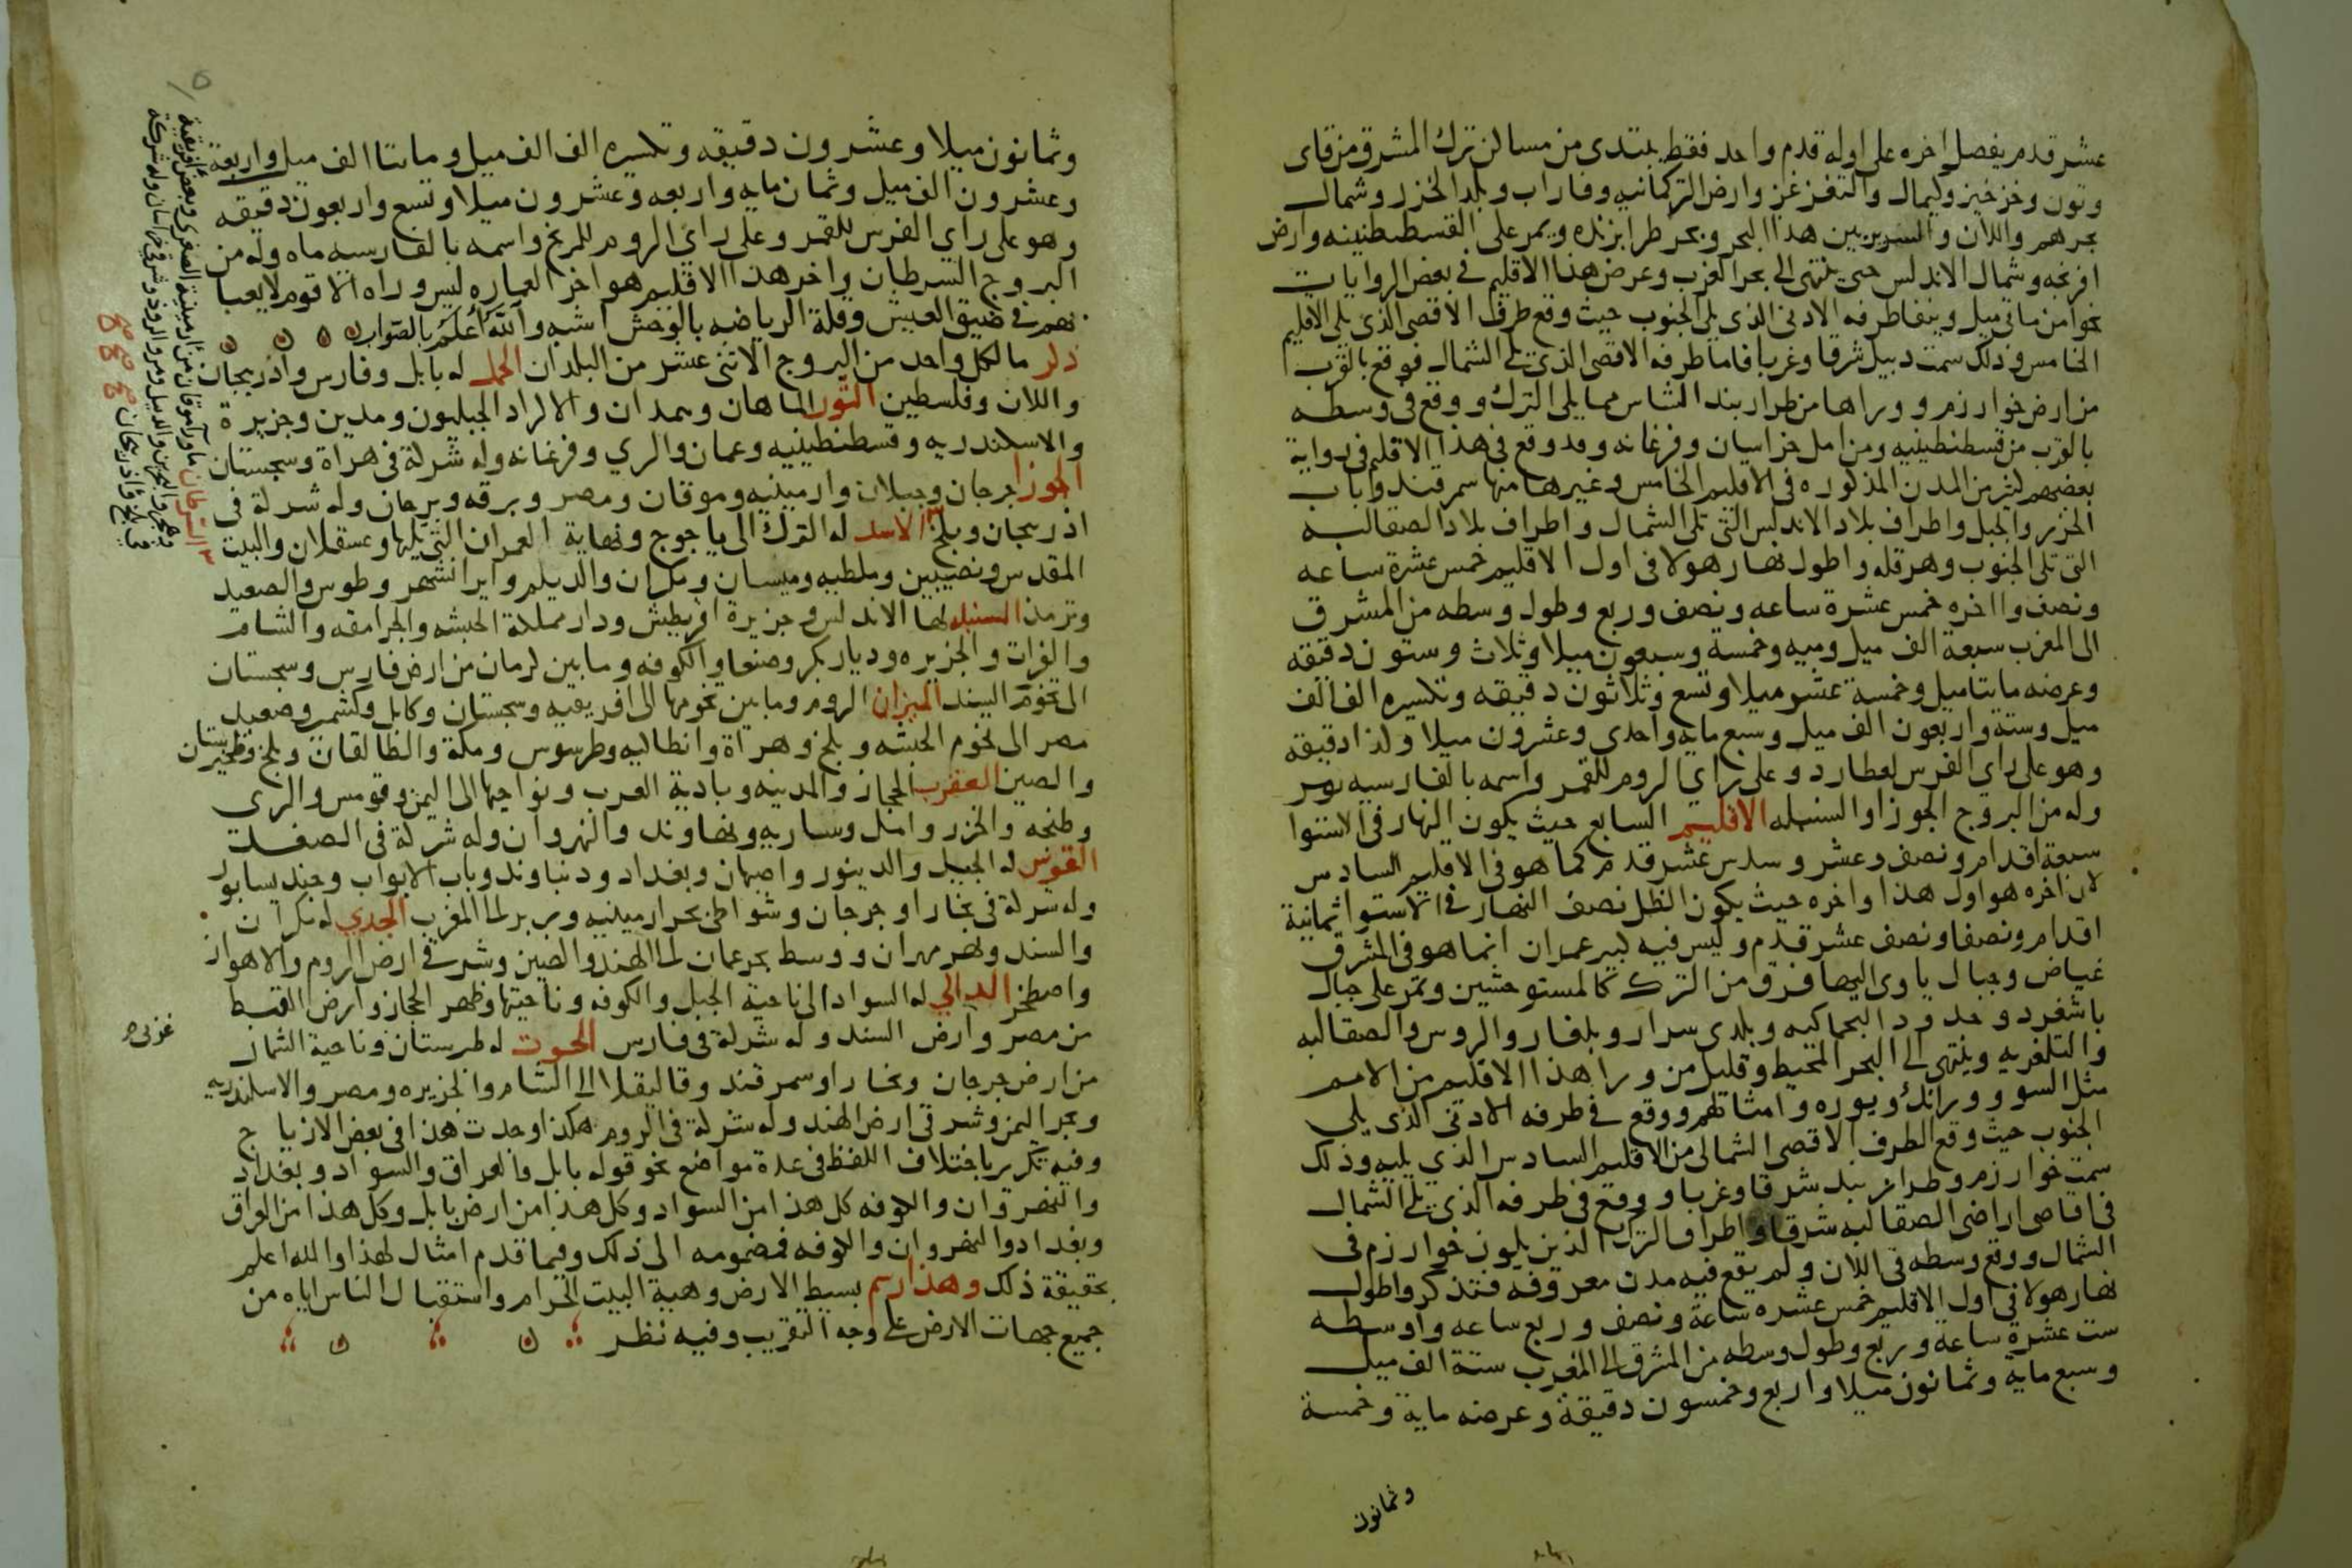 عشر قدم يفضل اخره على اوله قدم واحد فقط يبتدى من مساكن ترك المشرق من قاى
وتون وخرخيز وكيماك والتغزغز وارض التركمانيه وفاراب وبلد الخزر وشمال
بحرهم واللان والسرير بين هذا البحر وبحر طرابزنده ويمر على القسطنطينيه وارض
افرنجه وشمال الاندلس حتى ينتهى الى بحر الغرب وعرض هذا الاقليم في بعض الروايات
نحوا من ماتي ميل ونيفا طرفه الادنى الذى يلى الجنوب حيث وقع طرف الاقصى الذى يلى الاقليم
الخامس وذلك سمت دبيل شرقا وغربا فاما طرفه الاقصى الذى يلى الشمال فوقع بالقرب
من ارض خوارزم ووراها من طراربند الشاس مما يلى الترك ووقع فى وسطه
بالقرب من قسطنطينيه ومن امل خراسان وفرغانه وقد وقع فى هذا الاقليم فى رواية
بعضهم كثير من المدن المذكوره فى الاقليم الخامس وغيرها منها سمرقند وباب
الخزر والجبل واطراف بلاد الاندلس التى تلى الشمال واطراف بلاد الصقالبه
التى تلى الجنوب وهرقله واطول نهار هولا فى اول الاقليم خمس عشرة ساعه
ونصف واخره خمس عشرة ساعه ونصف وربع وطول وسطه من المشرق
الى المغرب سبعة الف ميل وميه وخمسة وسبعون ميلا وثلاث وستون دقيقه
وعرضه مايتا ميل وخمسة عشر ميلا وتسع وثلاثون دقيقه وتكسيره الف الف
ميل وستة واربعون الف ميل وسبع مايه واحدى وعشرون ميلا وكذا دقيقه
وهو على راى الفرس لعطارد وعلى راي الروم للقمر واسمه بالفارسيه تير
وله من البروج الجوزا والسنبله الاقليم السابع حيث يكون النهار فى الاستوا
سبعة اقدام ونصف وعشر وسدس عشر قدم كما هو فى الاقليم السادس
لان اخره هو اول هذا واخره حيث يكون الظل نصف النهار فى الاستوا ثمانية
اقدام ونصفا ونصف عشر قدم وليس فيه كبير عمران انما هو فى المشرق
غياض وجبال ياوى اليها فرق من الترك كالمستوحشين ويمر على جبال
باشغرد وحدود البجماكيه وبلدى سرار وبلغار والروس والصقالبه
والبلغريه وينتهى الى البحر المحيط وقليل من ورا هذا الاقليم من الامم
مثل السوو ورانك ويوره وامثالهم ووقع في طرفه الادنى الذى يلى
الجنوب حيث وقع الطرف الاقصى الشمالى من الاقليم السادس الذي يليه وذلك
سمت خوارزم وطراربند شرقا وغربا ووقع فى طرفه الذى يلى الشمال
فى اقاصى اراضى الصقالبه شرقا واطراف الترك الذين يلون خوارزم فى
الشمال ووقع وسطه فى اللان ولم يقع فيه مدن معروفه فتذكر واطول
نهار هولا فى اول الاقليم خمس عشره ساعة ونصف وربع ساعه واوسطه
ست عشرة ساعة وربع وطول وسطه من المشرق الى المغرب ستة الف ميل
وسبع ماية وثمانون ميلا واربع وخمسون دقيقة وعرضه ماية وخمسة
وثمانون
وثمانون ميلا وعشرون دقيقه وتكسيره الف الف ميل وماىتا الف ميل واربعة
وعشرون الف ميل وثمان مايه واربعه وعشرون ميلا وتسع واربعون دقيقه
وهو على راي الفرس للقمر وعلى راي الروم للمريخ واسمه بالفارسيه ماه وله من
البروج السرطان واخر هذا الاقليم هو اخر العماره ليس وراه الا قوم لا يعبا
بهم فى ضيق العيش وقلة الرياضه بالوحش اشبه والله اعلم بالصواب
ذكر ما لكل واحد من البروج الاثنى عشر من البلدان الحمل له بابل وفارس واذربيجان
واللان وفلسطين الثور الماهان وهمدان والاكراد الجبليون ومدين وجزيرة
والاسكندريه وقسطنطينيه وعمان والري وفرغانه وله شركة فى هراة وسجستان
الجوزا جرجان وجيلان وارمينيه وموقان ومصر وبرقه وبرجان وله شركة فى
اذربيجان وبلخ الاسد له الترك الى ياجوج ونهاية العمران التى يليها وعسقلان والبيت
المقدس ونصيبين وملطيه وميسان ومكران والديلم وايرانشهر وطوس والصعيد
وترمذ السنبله لها الاندلس وجزيرة اقريطش ودار مملكة الحبشه والجرامقه والشام
والفرات والجزيره وديار بكر وصنعا والكوفه وما بين كرمان من ارض فارس وسجستان
الى تخوم السند الميزان الروم وما بين تخومها الى افريقيه وسجستان وكابل وكشمير وصعيد
مصر الى تخوم الحبشه وبلخ وهراة وانطاكيه وطرسوس ومكة والطالقان وبلخ وطخيرستان
والصين العقرب الحجاز والمدينه وبادية العرب ونواحيها الى اليمن وقومس والرى
وطنجه والخزر وامل وساريه ونهاوند والنهروان وله شركة فى الصغد
القوس له الجبل والدينور واصبهان وبغداد ودنباوند وباب الابواب وجنديسابور
وله شركة فى بخارا وجرجان وشواطئ بحر ارمينيه وبربر الى المغرب الجدي له مكران
والسند ونهر مهران ووسط بحر عمان الى الهند والصين وشرقى ارض الروم والاهواز
واصطخر الدالي له السواد الى ناحية الجبل والكوفه وناحيتها وظهر الحجاز وارض القبط
من مصر وارض السند وله شركة فى فارس الحوت له طبرستان وناحية الشمال
من ارض جرجان وبخارا وسمرقند وقاليقلا الى الشام والجزيره ومصر والاسكندريه
وبحر اليمن وشرقى ارض الهند وله شركة فى الروم هكذا وجدت هذا فى بعض الازياج
وفيه تكرير باختلاف اللفظ فى عدة مواضع نحو قوله بابل والعراق والسواد وبغداد
والنهروان والكوفه كل هذا من السواد وكل هذا من ارض بابل وكل هذا من العراق
وبغداد والنهروان والكوفه فمضمومه الى ذلك وفيما قدم امثال لهذا والله اعلم
بحقيقة ذلك وهذا رسم بسيط الارض وهية البيت الحرام واستقبال الناس اياه من
جميع جهات الارض على وجه التقريب وفيه نظر
السرطان ما ورا موقان من ارمينية الصغرى وبعض افريقية
وهجر والبحرين والديبل ومرو الروذ وشرقى خراسان وله شركة
فى بلخ واذربيجان
غربى